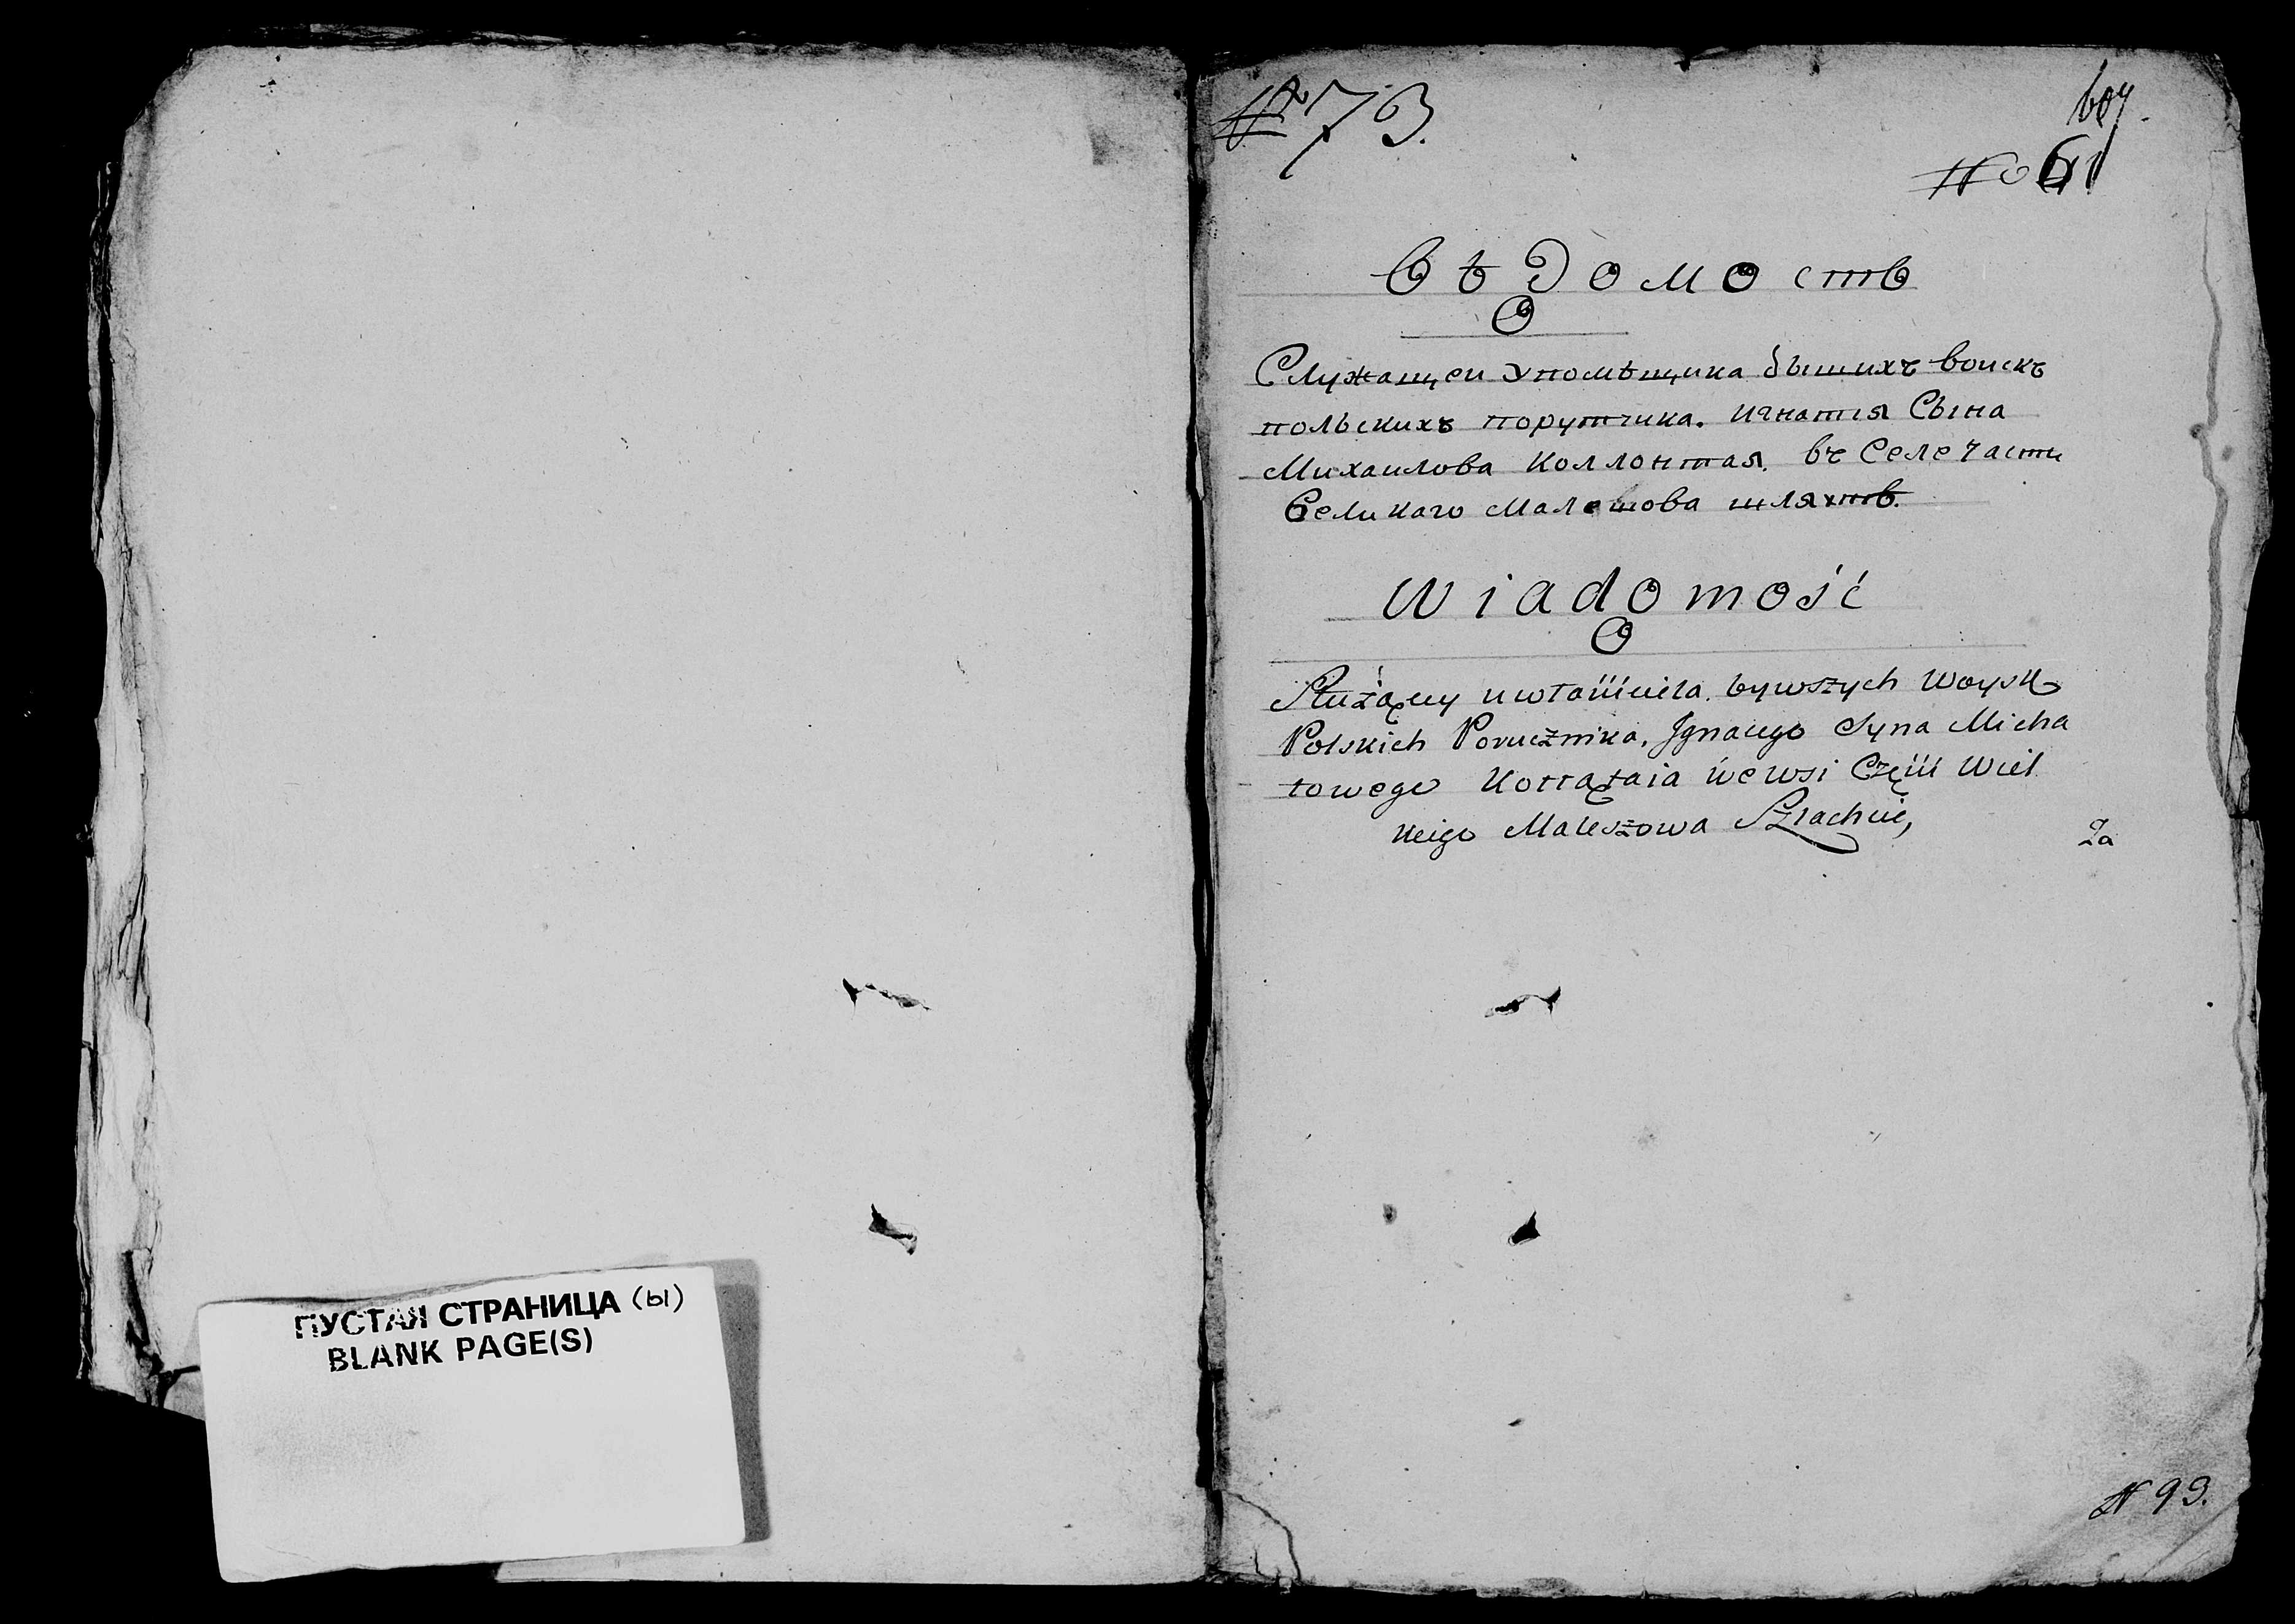 ПУСТАЯ СТРАНИЦА (ы)
BLANK PAGE(S)
№ 73.
607.
№ 61
Вѣдомость
О
Служащеи упомѣщика бышихъ воискъ
польскихъ порутчика. игнатия Сына
Михаилова Коллонтая. въ Селе Части
Великаго Малешова шляхтв.
Wiadomość
O
Służący u własciciela bywszych Woysk
Polskich Porucznika, Jgnacego Syna Micha
łowego Kołłątaia we wsi Częsci Wiel
kiego Maleszowa Szlachcie,
Za
N 93.